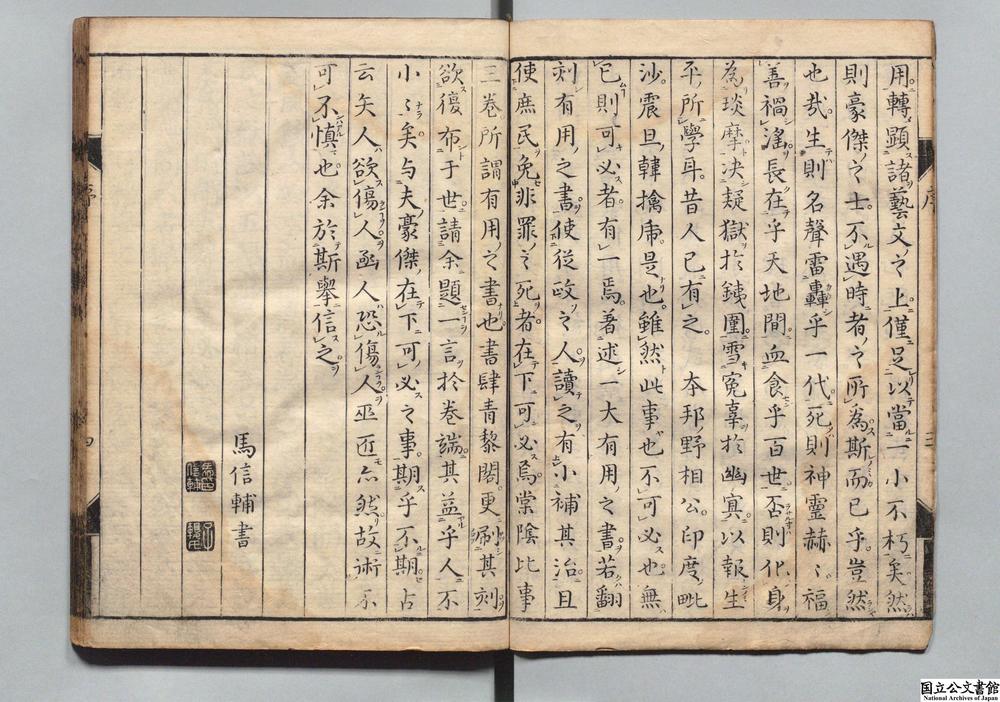 用轉顯諸藝文之上僅足以當一小不朽矣然
則豪傑之士不遇時者之所為斯而已乎豈然
也哉生則名聲雷轟乎一代死則神靈赫〻福
善禍淫長在乎天地間血食乎百世否則化身
為琰摩决疑獄於鉄圍雪寃辜於幽冥以報生
平所學耳昔人已有之本邦野相公印度毗
沙震旦韓擒虎是也雖然此事也不可必也無
已則可必者有一焉著述一大有用之書若翻
刻有用之書使從政之人讀之有小補其治且
使庶民免非罪之死者在下可必焉棠陰比事
三卷所謂有用之書也書肆青黎閣更刷其刻
欲復布于世請余題一言於卷端其益乎人不
小〻矣与夫豪傑在下可必之事期乎不期占
云矢人欲傷人函人恐傷人巫匠亦然故術不
可不慎也余於斯舉信之
馬信輔書
序
三
四
国立公文書館
National Archives of Japan